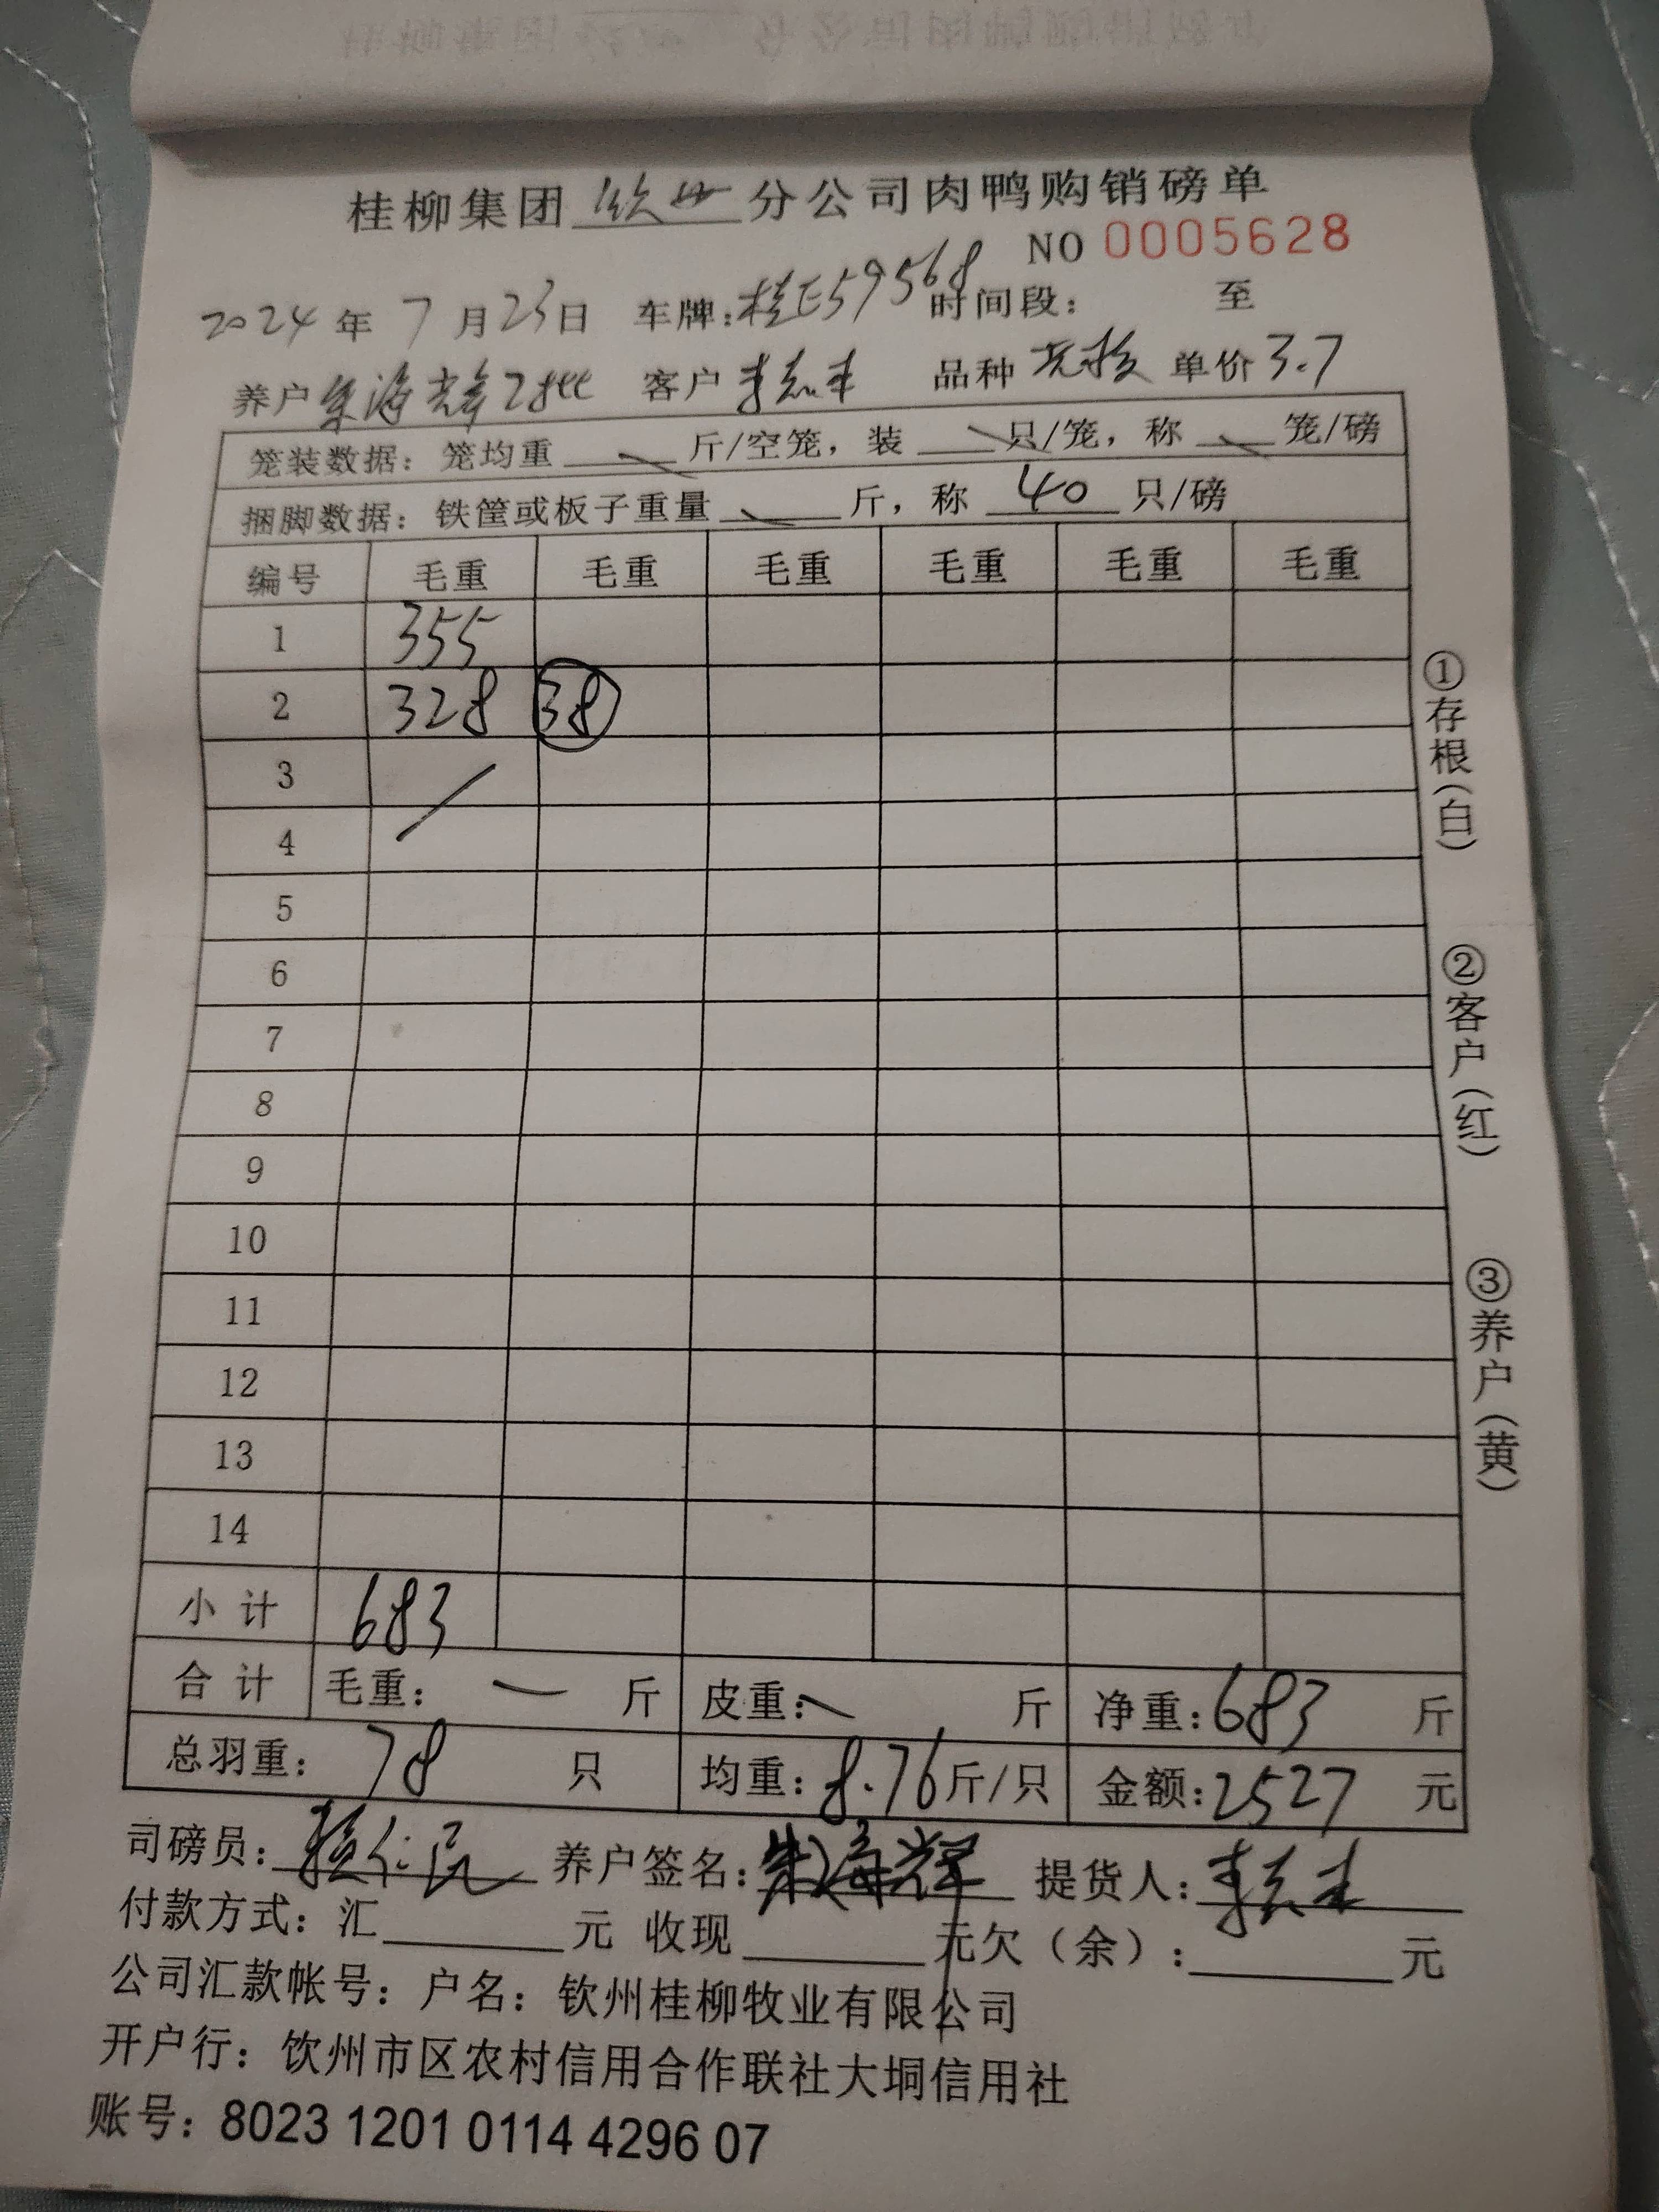 桂柳集团 钦州 分公司肉鸭购销磅单
NO 0005628
2024 年 7 月 23 日 车牌:桂E59568 时间段: 至
养户 朱海 客户 李志丰 品种 单价 3.7
笼装数据: 笼均重 斤/空笼, 装 只/笼, 称 笼/磅
捆脚数据: 铁筐或板子重量 斤, 称 40 只/磅
编号 毛重 毛重 毛重 毛重 毛重 毛重
1 355
2 328 38
3
4
5
6
7
8
9
10
11
12
13
14
小计 683
合计 毛重: 斤 皮重: 斤 净重: 683 斤
总羽重: 78 只 均重: 8.76 斤/只 金额: 2527 元
司磅员: 养户签名: 朱海辉 提货人: 李志丰
付款方式: 汇 元 收现 元欠(余): 元
公司汇款帐号: 户名: 钦州桂柳牧业有限公司
开户行: 钦州市区农村信用合作联社大垌信用社
账号: 8023 1201 0114 4296 07
①存根(白)
②客户(红)
③养户(黄)